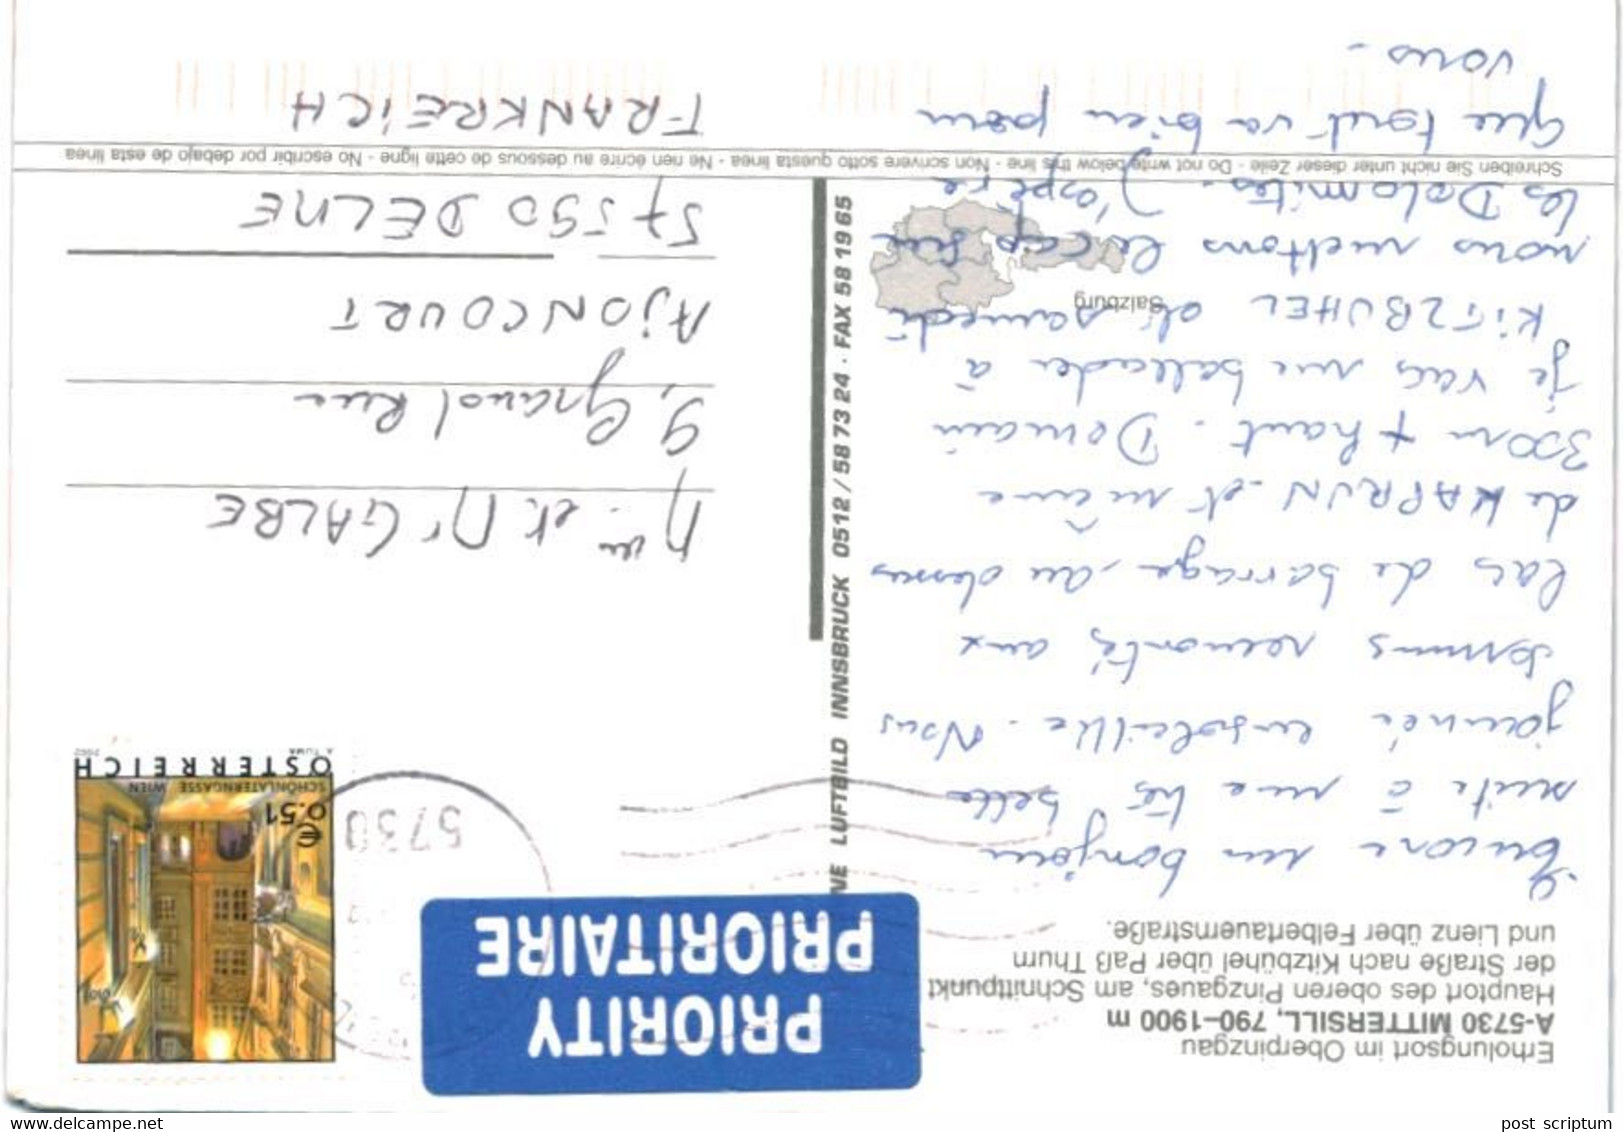 Erholungsort im Oberpinzgau
A-5730 MITTERSILL, 790–1900 m
Hauptort des oberen Pinzgaues, am Schnittpunkt
der Straße nach Kitzbühel über Paß Thurn
und Lienz über Felbertauernstraße.
Encore un bonjour
suite à une très belle
journée ensoleillée. Nous
sommes remontés aux
lacs de barrage au dessus
de KAPRUN et même
300m + haut. Demain
je vais me ballader à
KITZBUHEL et samedi
nous mettons le cap sur
les Dolomites. J'espère
que tout va bien pour
vous.
Salzburg
NE LUFTBILD INNSBRUCK 0512/58 73 24 · FAX 58 19 65
PRIORITY
PRIORITAIRE
5730
€ 0.51
SCHÖNLATERNGASSE WIEN
ÖSTERREICH
A. TUMA 2002
Mme et Mr GALBE
9, Grand Rue
AJONCOURT
57590 DELME
Schreiben Sie nicht unter dieser Zeile - Do not write below this line - Non scrivere sotto questa linea - Ne rien écrire au dessous de cette ligne - No escribir por debajo de esta linea
FRANKREICH
post scriptum
www.delcampe.net